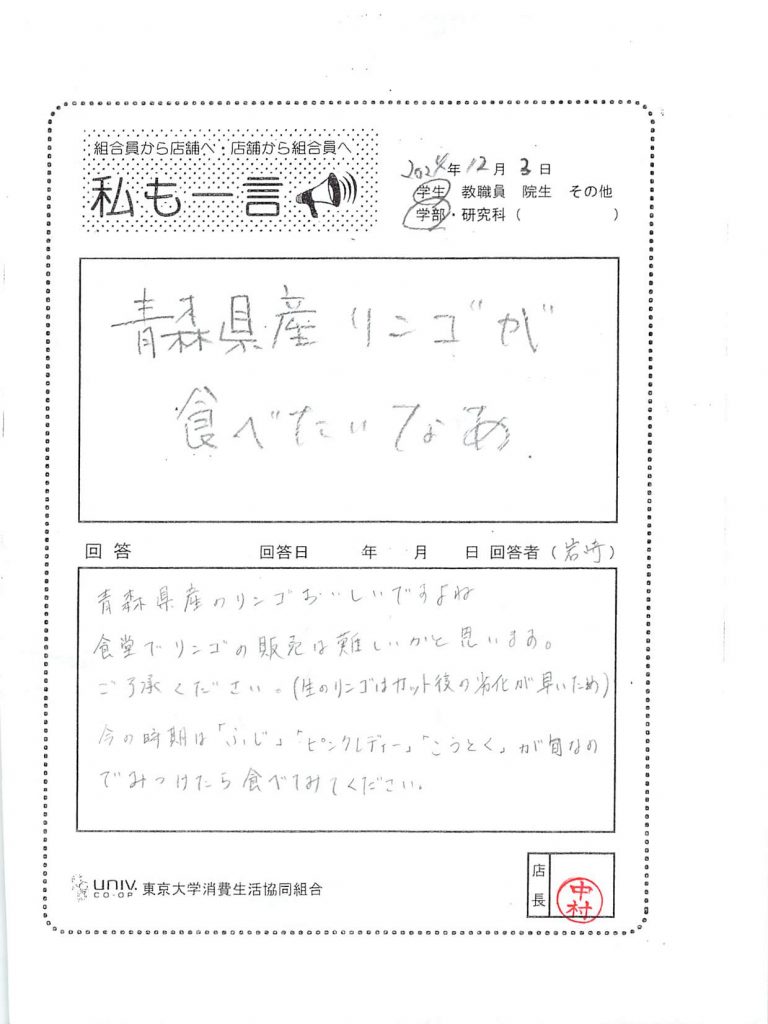 組合員から店舗へ・店舗から組合員へ
私も一言
2024年12月3日
学生 教職員 院生 その他
学部・研究科（　　　）
青森県産リンゴが
食べたいなあ
回答 回答日 年 月 日 回答者（岩崎）
青森県産のリンゴおいしいですよね
食堂でリンゴの販売は難しいかと思います。
ご了承ください。（生のリンゴはカット後の劣化が早いため）
今の時期は「ふじ」「ピンクレディー」「こうとく」が旬なの
でみつけたら食べてみてください。
UNIV.
CO-OP
東京大学消費生活協同組合
店長
中村